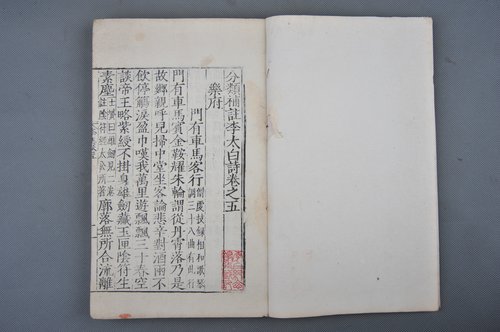 分類補註李太白詩卷之五
樂府
門有車馬客行
門有車馬賓金鞍耀朱輪謂從丹霄落乃是
故鄉親呼兒掃中堂坐客論悲辛對酒兩不
飲停觴淚盈巾嘆我萬里遊飄飄三十春空
談帝王略紫綬不掛身雄劍藏玉匣陰符生
素塵廓落無所合流離